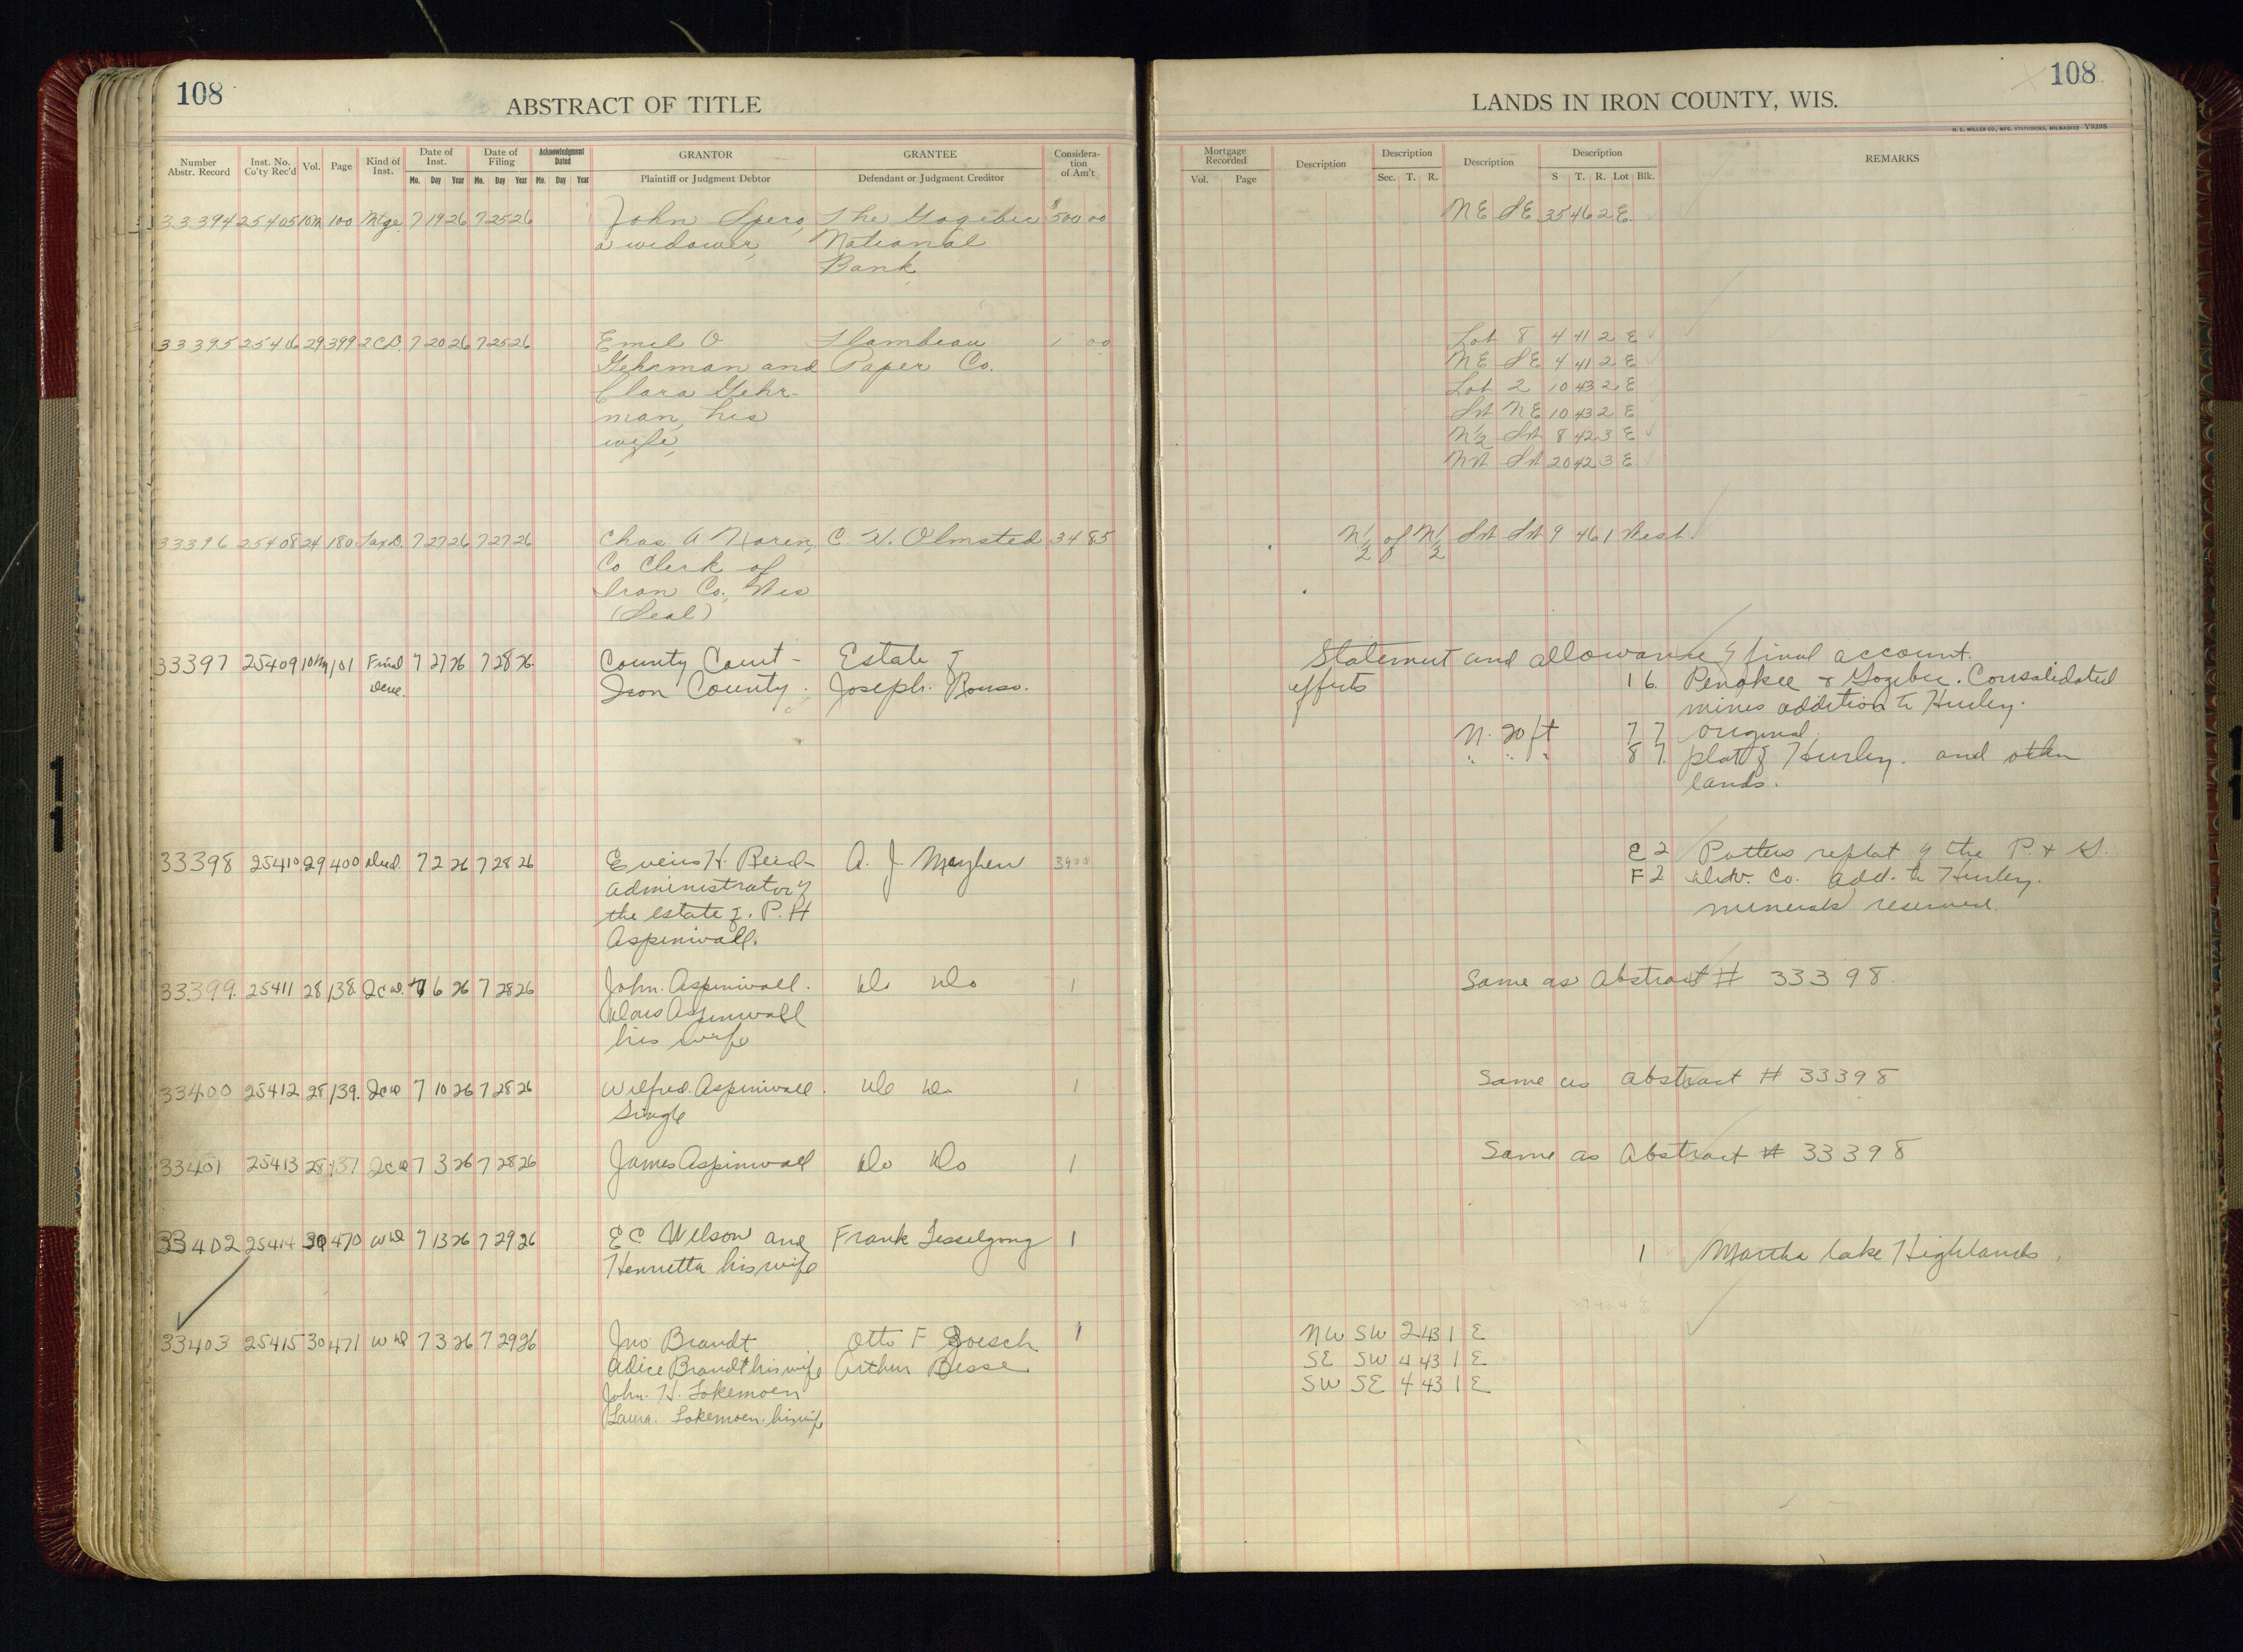 108
ABSTRACT OF TITLE
Number Abstr. Record
Inst. No. Co'ty Rec'd
Vol.
Page
Kind of Inst.
Date of Inst.
Mo. Day Year
Date of Filing
Mo. Day Year
Acknowledgment Dated
Mo. Day Year
GRANTOR
Plaintiff or Judgment Debtor
GRANTEE
Defendant or Judgment Creditor
Consideration of Am't
33394 25405 10M 100 Mtge. 7 19 26 7 25 26 John Spero, The Gogebic $500 00
a widower, National
Bank
33395 25406 29 399 2CD. 7 20 26 7 25 26 Emil O Flambeau 1 00
Gehrman and Paper Co.
Clara Gehr-
man, his
wife,
33396 25408 24 180 Tax D. 7 27 26 7 27 26 Chas A Noren, C. W. Olmsted 34 85
Co Clerk of
Iron Co., Wis
(Seal)
33397 25409 10M 101 Final 7 27 26 7 28 26. County Court - Estate of
Decree. Iron County. Joseph
33398 25410 29 400 Deed. 7 2 26 7 28 26 H. Reed- A. J. Mayhew
administrator of
the estate of. P. H
Aspinwall.
33399. 25411 28 138. 2CW. 7 6 26 7 28 26 John. Aspinwall. Do Do 1
Aspinwall
his wife
33400 25412 28 139. 2CW 7 10 26 7 28 26 Wilfred. Aspinwall. Do Do 1
Single
33401 25413 28 137 2CW 7 3 26 7 28 26 James Aspinwall Do Do 1
33402 25414 30 470 WD 7 13 26 7 29 26 E C. Wilson and Frank Tesselgong 1
Henrietta his wife
33403 25415 30 471 WD 7 3 26 7 29 26 Jno Brandt Otto F Boesch 1
Alice Brandt his wife Arthur Besse
John. H. Lokemoen
Laura. Lokemoen. his wife
108
LANDS IN IRON COUNTY, WIS.
H. C. MILLER CO., MFG. STATIONERS, MILWAUKEE Y9398
Mortgage Recorded
Vol. Page
Description
Description
Sec. T. R.
Description
Description
S T. R. Lot Blk.
REMARKS
NE SE 35 46 2 E.
Lot 8 4 41 2 E
NE SE 4 41 2 E
Lot 2 10 43 2 E
SW NE 10 43 2 E
N½ SW 8 42 3 E
NW SW 20 42 3 E
N½ of N½ SW SW 9 46 1 West.
Statement and allowance of final account.
effects 1 6. Penokee & Gogebic. Consolidated
mines addition to Hurley.
N. 20 ft 7 7 original
" " " 8 7. plat of Hurley. and other
lands.
E 2 Potters replat of the P. & G.
F 2 Dev. Co. add. to Hurley.
minerals reserved.
Same as Abstract # 33398.
Same as abstract # 33398
Same as Abstract # 33398
1 Martha Lake Highlands.
NW SW 2 43 1 E
SE SW 4 43 1 E
SW SE 4 43 1 E